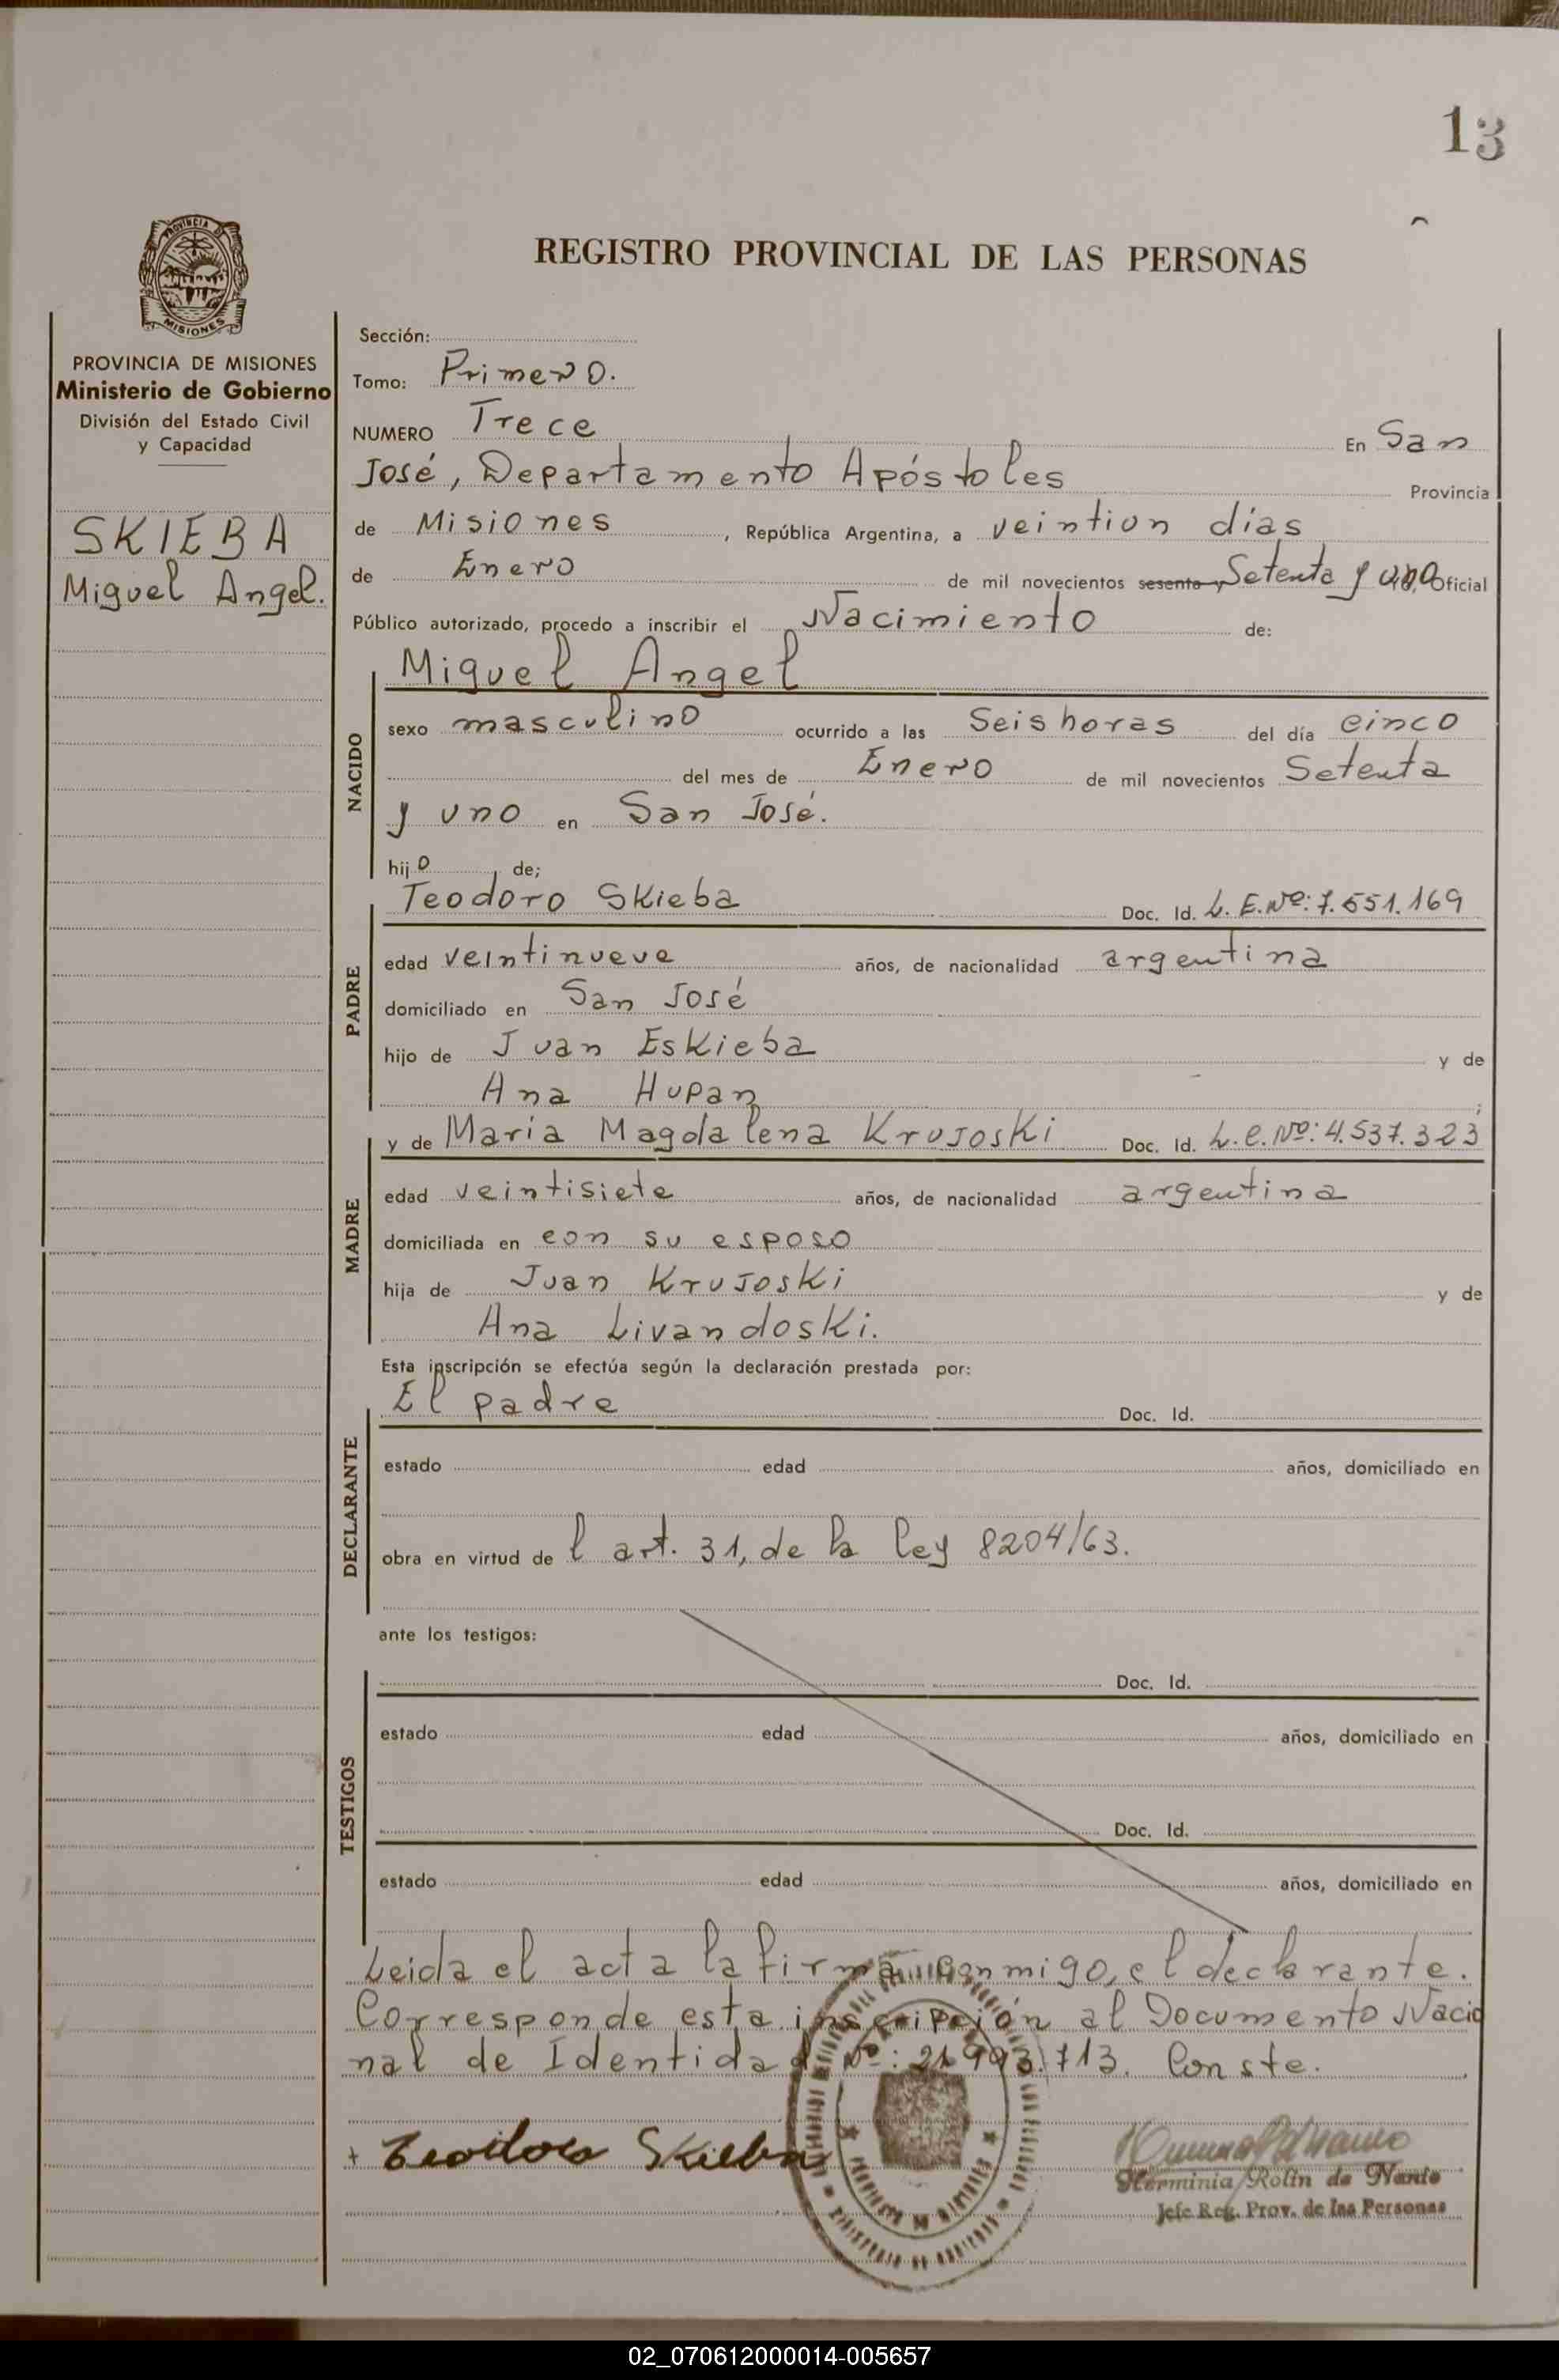 13
REGISTRO PROVINCIAL DE LAS PERSONAS
PROVINCIA DE MISIONES
Ministerio de Gobierno
División del Estado Civil
y Capacidad
SKIEBA
Miguel Angel.
Sección:
Tomo: Primero.
NUMERO Trece En San
José, Departamento Apóstoles Provincia
de Misiones, República Argentina, a veintiun días
de Enero de mil novecientos sesenta y Setenta y uno, Oficial
Público autorizado, procedo a inscribir el Nacimiento de:
NACIDO
Miguel Angel
sexo masculino ocurrido a las Seis horas del día cinco
del mes de Enero de mil novecientos Setenta
y uno en San José.
hijo de;
PADRE
Teodoro Skieba Doc. Id. L. E. Nº: 7.551.169
edad veintinueve años, de nacionalidad argentina
domiciliado en San José
hijo de Juan Eskieba y de
Ana Hupan;
MADRE
y de María Magdalena Krujoski Doc. Id. L.C. Nº: 4.537.323
edad veintisiete años, de nacionalidad argentina
domiciliada en con su esposo
hija de Juan Krujoski y de
Ana Livandoski.
Esta inscripción se efectúa según la declaración prestada por:
DECLARANTE
El padre Doc. Id.
estado edad años, domiciliado en
obra en virtud de l art. 31, de la ley 8204/63.
ante los testigos:
TESTIGOS
Doc. Id.
estado edad años, domiciliado en
Doc. Id.
estado edad años, domiciliado en
Leida el acta la firma conmigo, el declarante.
Corresponde esta inscripción al Documento Nacio
nal de Identidad Nº: 21.993.713. Conste.
+ Teodoro Skieba
Herminia Rolin de Nanio
Jefe Reg. Prov. de las Personas
02_070612000014-005657